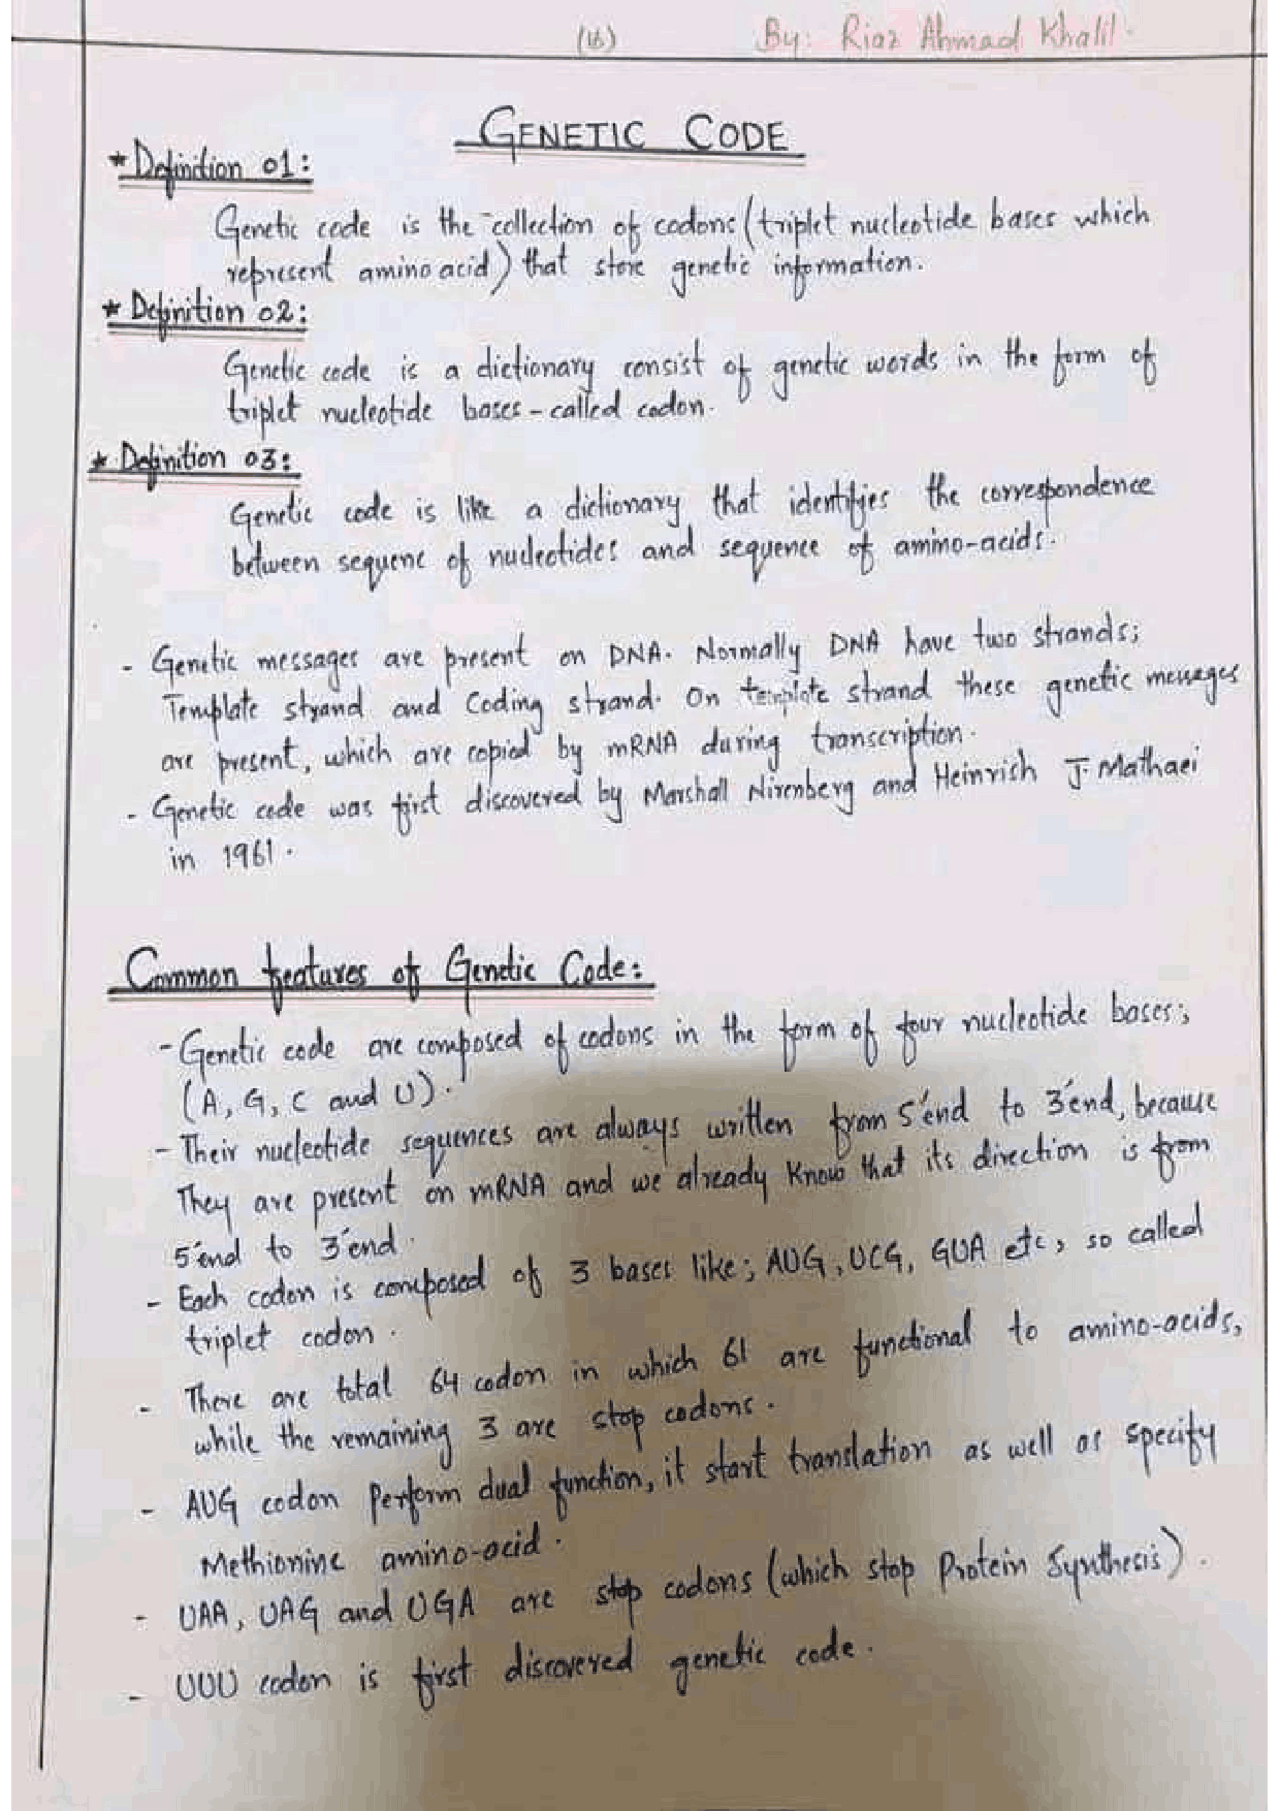 (16) By: Riaz Ahmad Khalil.
GENETIC CODE
* Definition 01:
Genetic code is the collection of codons (triplet nucleotide bases which
represent amino acid) that store genetic information.
* Definition 02:
Genetic code is a dictionary consist of genetic words in the form of
triplet nucleotide bases - called codon.
* Definition 03:
Genetic code is like a dictionary that identifies the correspondence
between sequenc of nucleotides and sequence of amino-acids.
- Genetic messages are present on DNA. Normally DNA have two strands;
Template strand and Coding strand. On template strand these genetic messages
are present, which are copied by mRNA during transcription.
- Genetic code was first discovered by Marshall Nirenberg and Heinrich J. Mathaei
in 1961.
Common features of Genetic Code:
- Genetic code are composed of codons in the form of four nucleotide bases;
(A, G, C and U).
- Their nucleotide sequences are always written from 5'end to 3'end, because
They are present on mRNA and we already know that its direction is from
5'end to 3'end.
- Each codon is composed of 3 bases like; AUG, UCG, GUA etc, so called
triplet codon.
- There are total 64 codon in which 61 are functional to amino-acids,
while the remaining 3 are stop codons.
- AUG codon Perform dual function, it start translation as well as specify
Methionine amino-acid.
- UAA, UAG and UGA are stop codons (which stop Protein Synthesis).
- UUU codon is first discovered genetic code.